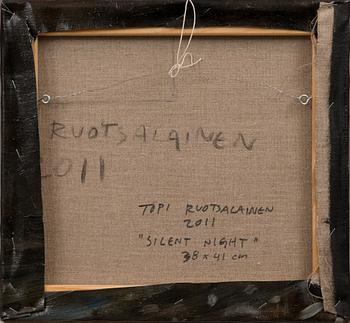 RUOTSALAINEN
2011
TOPI RUOTSALAINEN
2011
"SILENT NIGHT"
38 x 41 cm